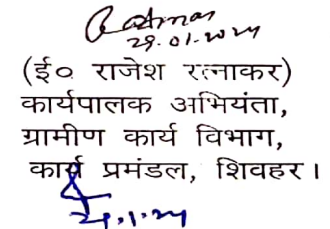 29.01.2024
(ई० राजेश रत्नाकर)
कार्यपालक अभियंता,
ग्रामीण कार्य विभाग,
कार्य प्रमंडल, शिवहर।